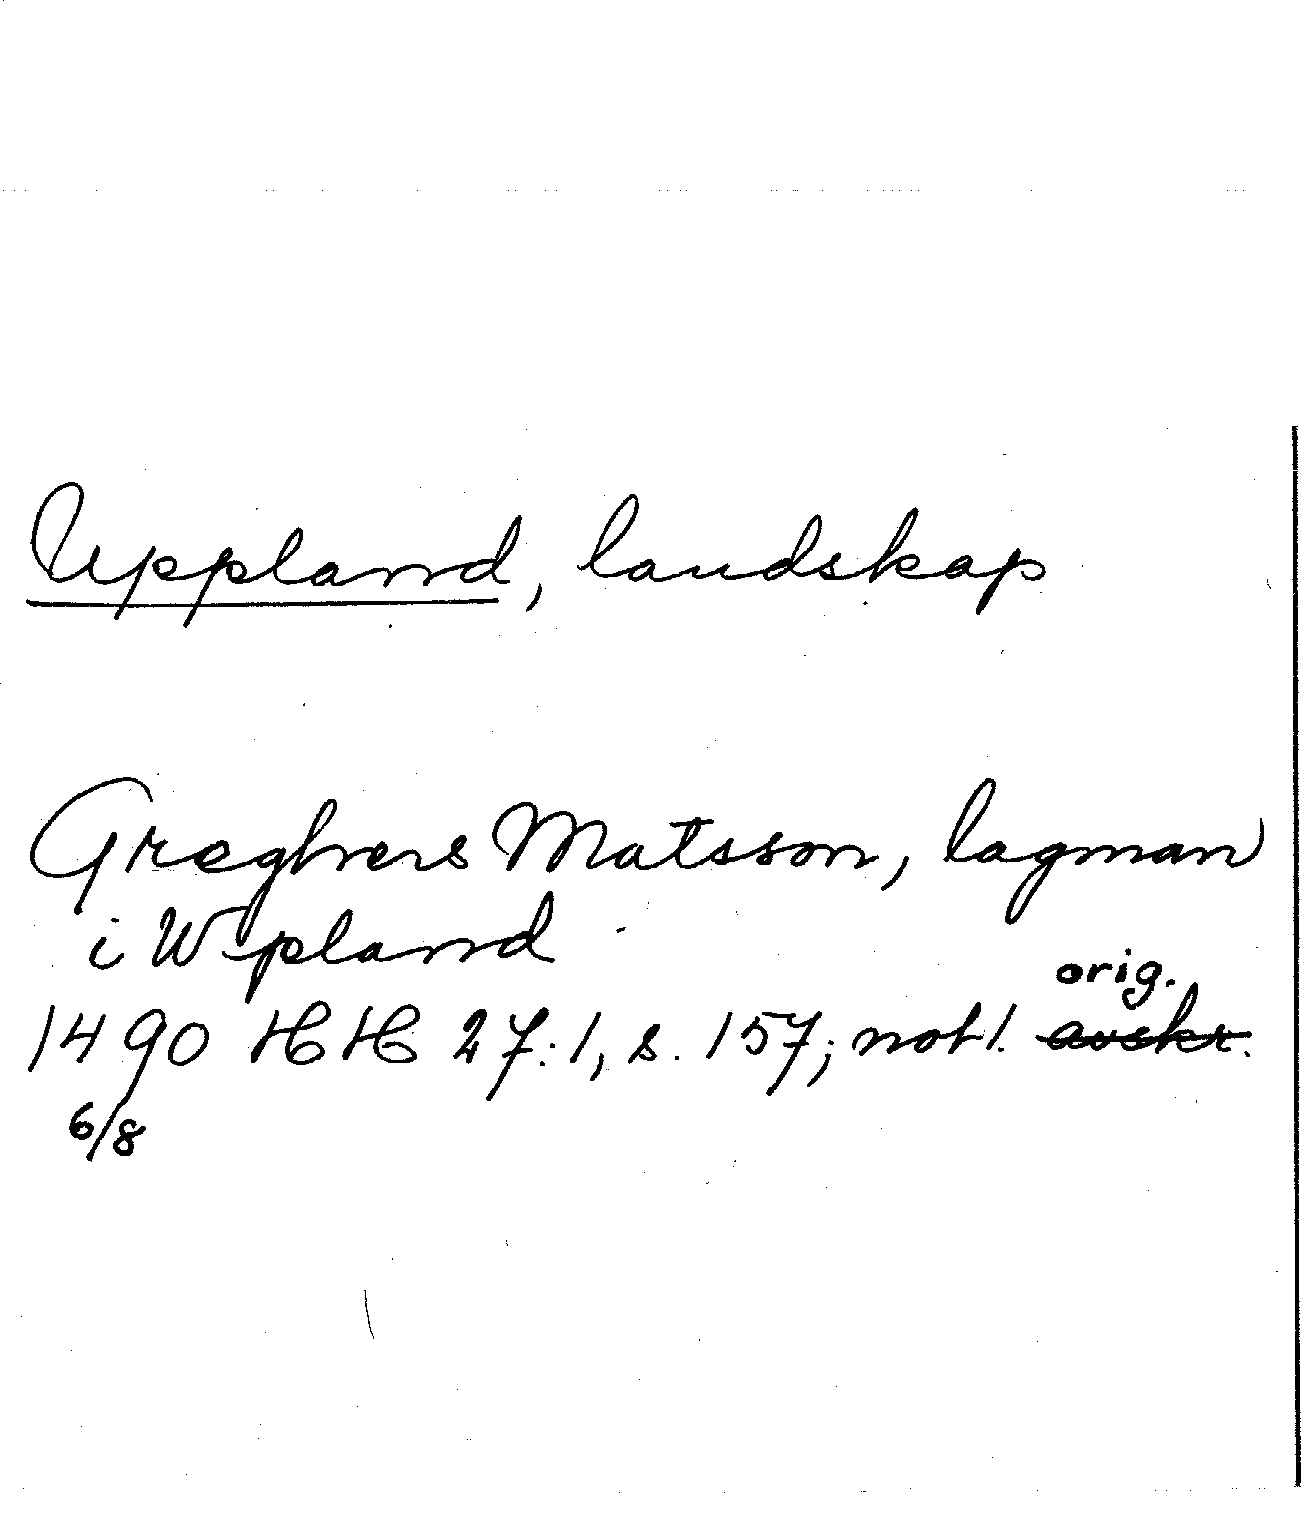 Uppland, landskap
Greghers Matsson, lagman
i Wpland
orig.
1490 HH 27:1, s. 157; not 1. avskr.
6/8